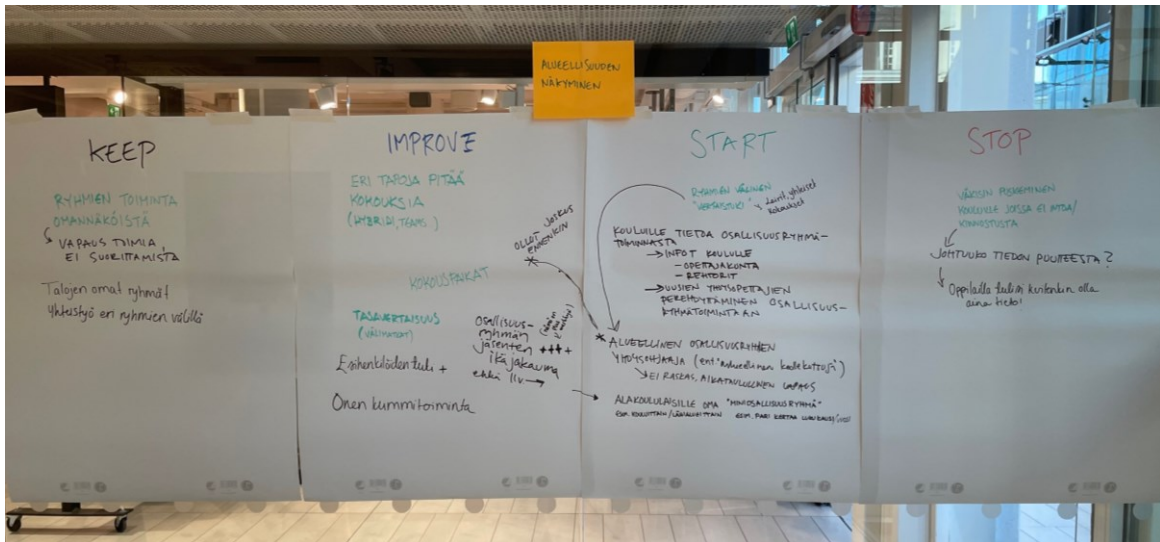 ALUEELLISUUDEN
NÄKYMINEN
KEEP
RYHMIEN TOIMINTA
OMANNÄKÖISTÄ
VAPAUS TOIMIA,
EI SUORITTAMISTA
Talojen omat ryhmät
yhteistyö eri ryhmien välillä
IMPROVE
ERI TAPOJA PITÄÄ
KOKOUKSIA
(HYBRIDI, TEAMS..)
OLLUT JOSKUS
ENNENKIN
KOKOUSPAIKAT
TASAVERTAISUUS
(VÄLIMATKAT)
Esihenkilöiden tuki +
Onen kummitoiminta
OSALLISUUS-
ryhmän
jäsenten ++++
ikäjakauma
ehkä
START
RYHMIEN VÄLINEN
"VERTAISTUKI"
leirit, yhteiset
kokoukset
KOULUILLE TIETOA OSALLISUUSRYHMÄ-
TOIMINNASTA
→ INFOT KOULULLE
- OPETTAJAKUNTA
- REHTORIT
→ UUSIEN YHTYSOPETTAJIEN
PEREHDYTTÄMINEN OSALLISUUS-
RYHMÄTOIMINTAAN
* ALUEELLINEN OSALLISUUSRYHMIEN
YHDYSOHJAAJA (ent. "alueellinen
EI RASKAS, AIKATAULULLINEN VAPAUS
ALAKOULULAISILLE OMA "MINIOSALLISUUSRYHMÄ"
ESIM. KOULUITTAIN/LÄHIALUEITTAIN ESIM. PARI KERTAA LUKUKAUSI/
STOP
VÄKISIN PUSKEMINEN
KOULUILLE JOISSA EI INTOA/
KIINNOSTUSTA
JOHTUUKO TIEDON PUUTTEESTA?
Oppilailla tulisi kuitenkin olla
aina tieto!